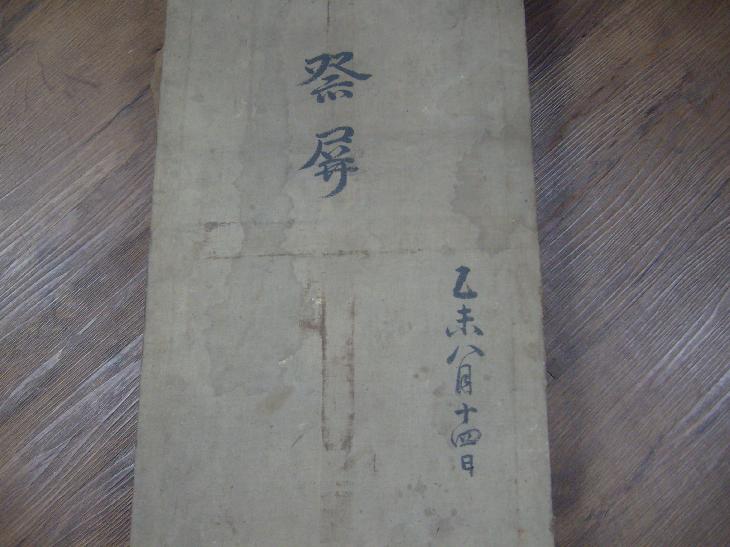 祭屛
乙未八月十四日